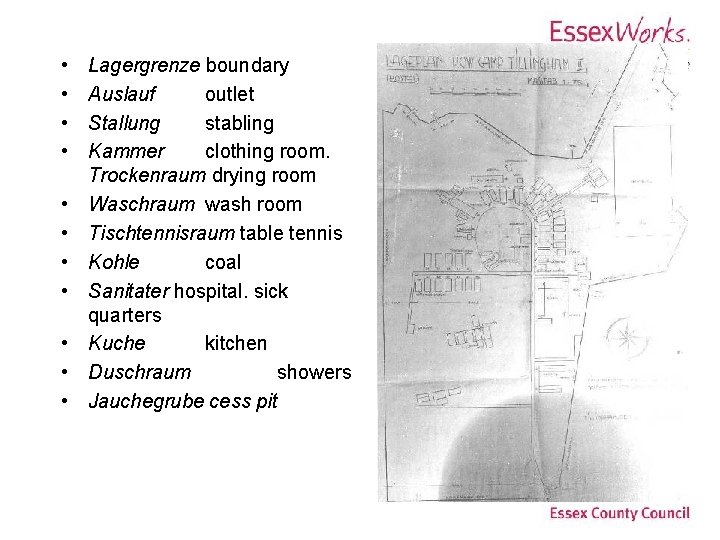 EssexWorks.
• Lagergrenze boundary
• Auslauf outlet
• Stallung stabling
• Kammer clothing room.
Trockenraum drying room
• Waschraum wash room
• Tischtennisraum table tennis
• Kohle coal
• Sanitater hospital. sick
quarters
• Kuche kitchen
• Duschraum showers
• Jauchegrube cess pit
LAGEPLAN P.O.W. CAMP TILLINGHAM
Essex County Council